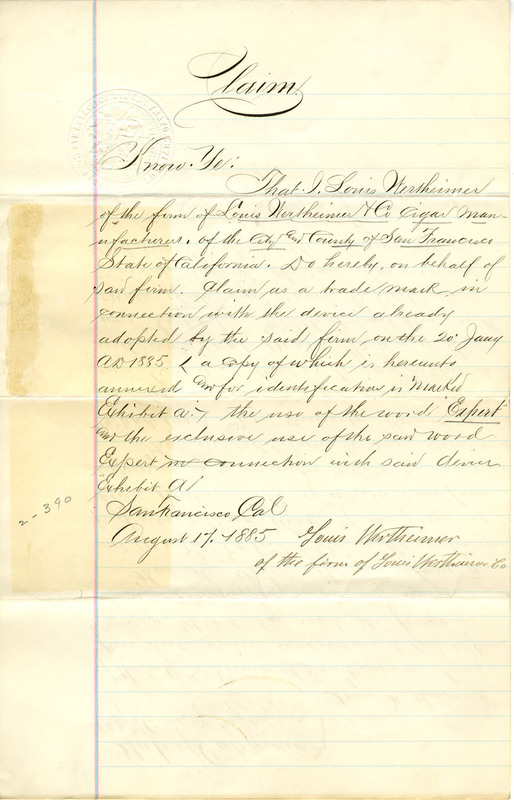 Claim.
Know Ye:
That I, Louis Wertheimer
of the firm of Louis Wertheimer & Co Cigar Man-
ufacturers, of the City and County of San Francisco
State of California. Do hereby, on behalf of
said firm. Claim as a trade mark in
connection with the device already
adopted by the said firm, on the 20 Jany
AD 1885 ( a copy of which is hereunto
annexed and for identification is marked
Exhibit A ) the use of the word "Expert"
and the exclusive use of the said word
Expert in connection with said device
"Exhibit A"
San Francisco, Cal
August 17. 1885 Louis Wertheimer
of the firm of Louis Wertheimer Co
2-390